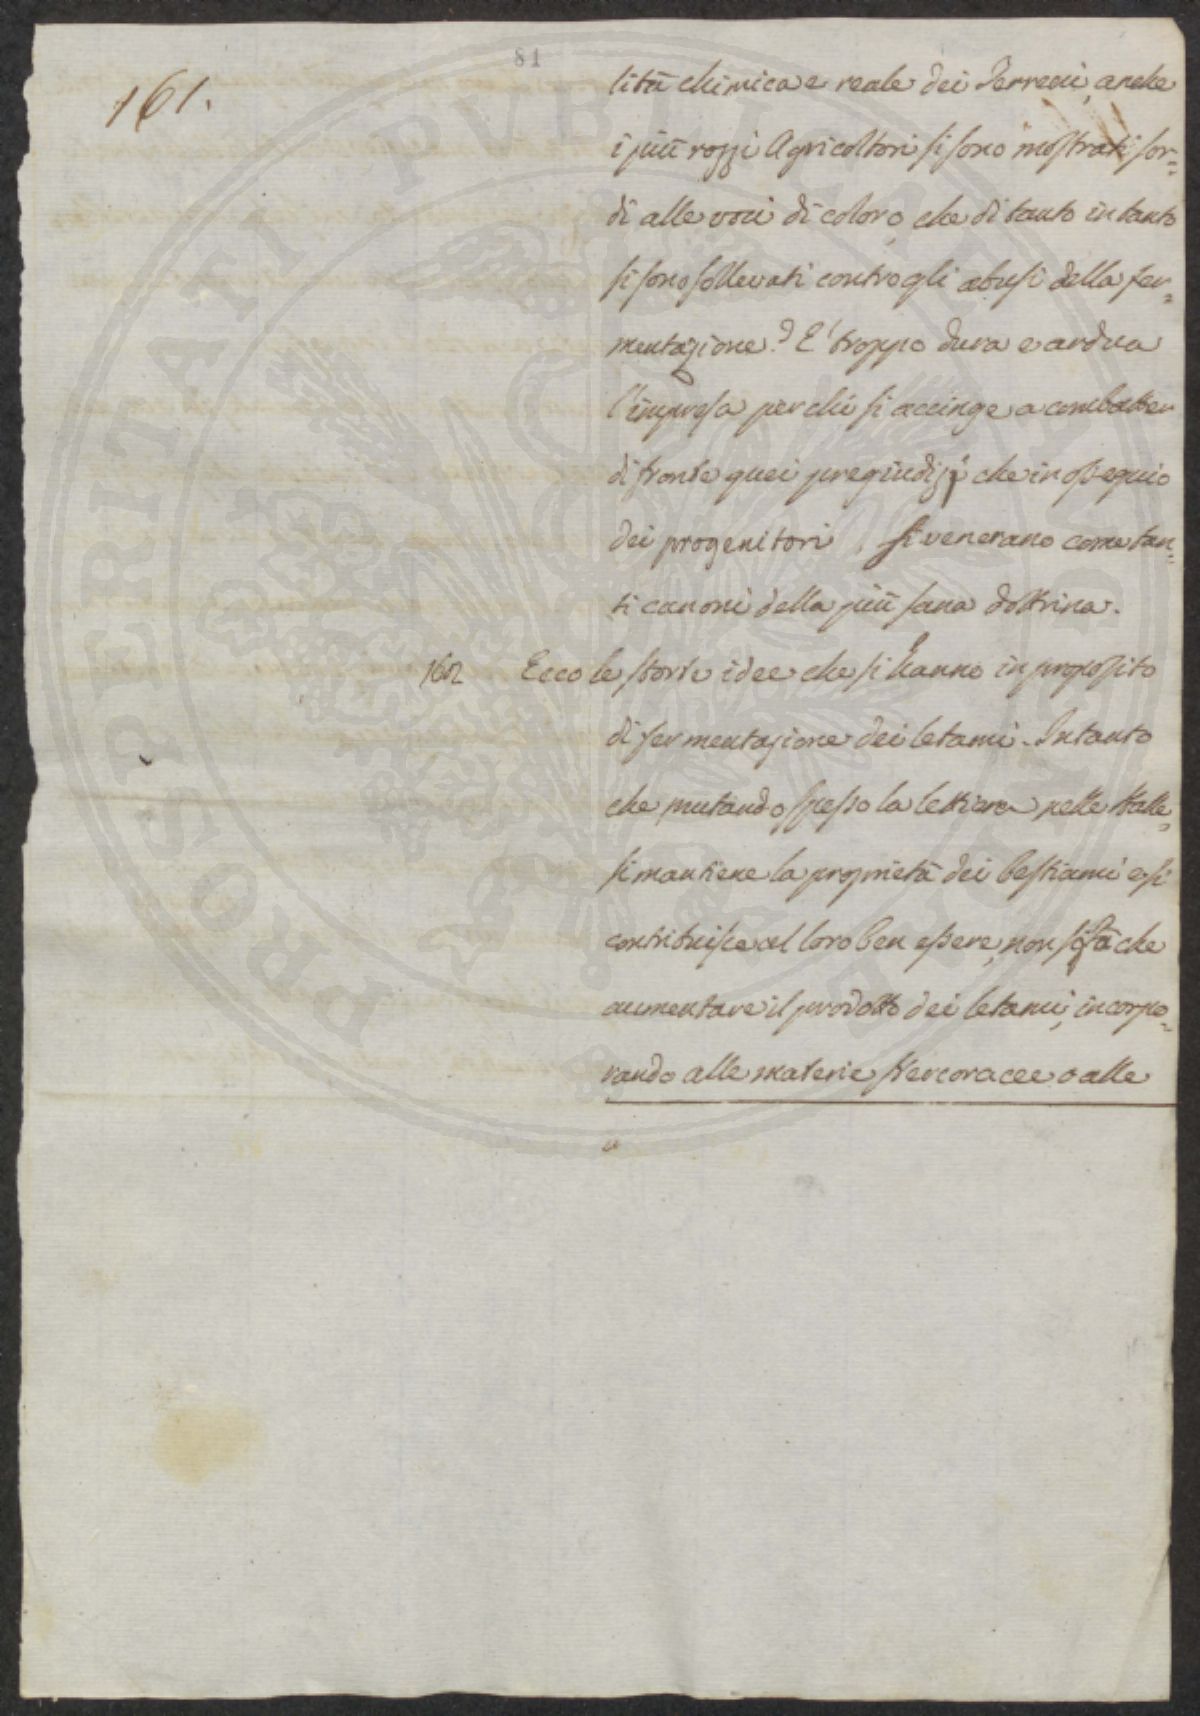 81
161.
lità chimica e reale dei Terreni, anche
i più rozzi Agricoltori si sono mostrati sor=
di alle voci di coloro, che di tanto in tanto
si sono sollevati contro gli abusi della fer=
mentazione? E' troppo dura e ardua
l'impresa per chi si accinge a combatter
di fronte quei pregiudizj che in ossequio
dei progenitori, si venerano come tan=
ti canoni della più sana dottrina.
162 Ecco le storte idee che si hanno in proposito
di fermentazione dei letami. Intanto
che mutando spesso la lettiera nelle stalle,
si mantiene la proprietà dei bestiami e si
contribuisce al loro ben essere, non si fà che
aumentare il prodotto dei letami, incorpo=
rando alle materie stercoracee o alle
PROSPERITATI PVBLICAE